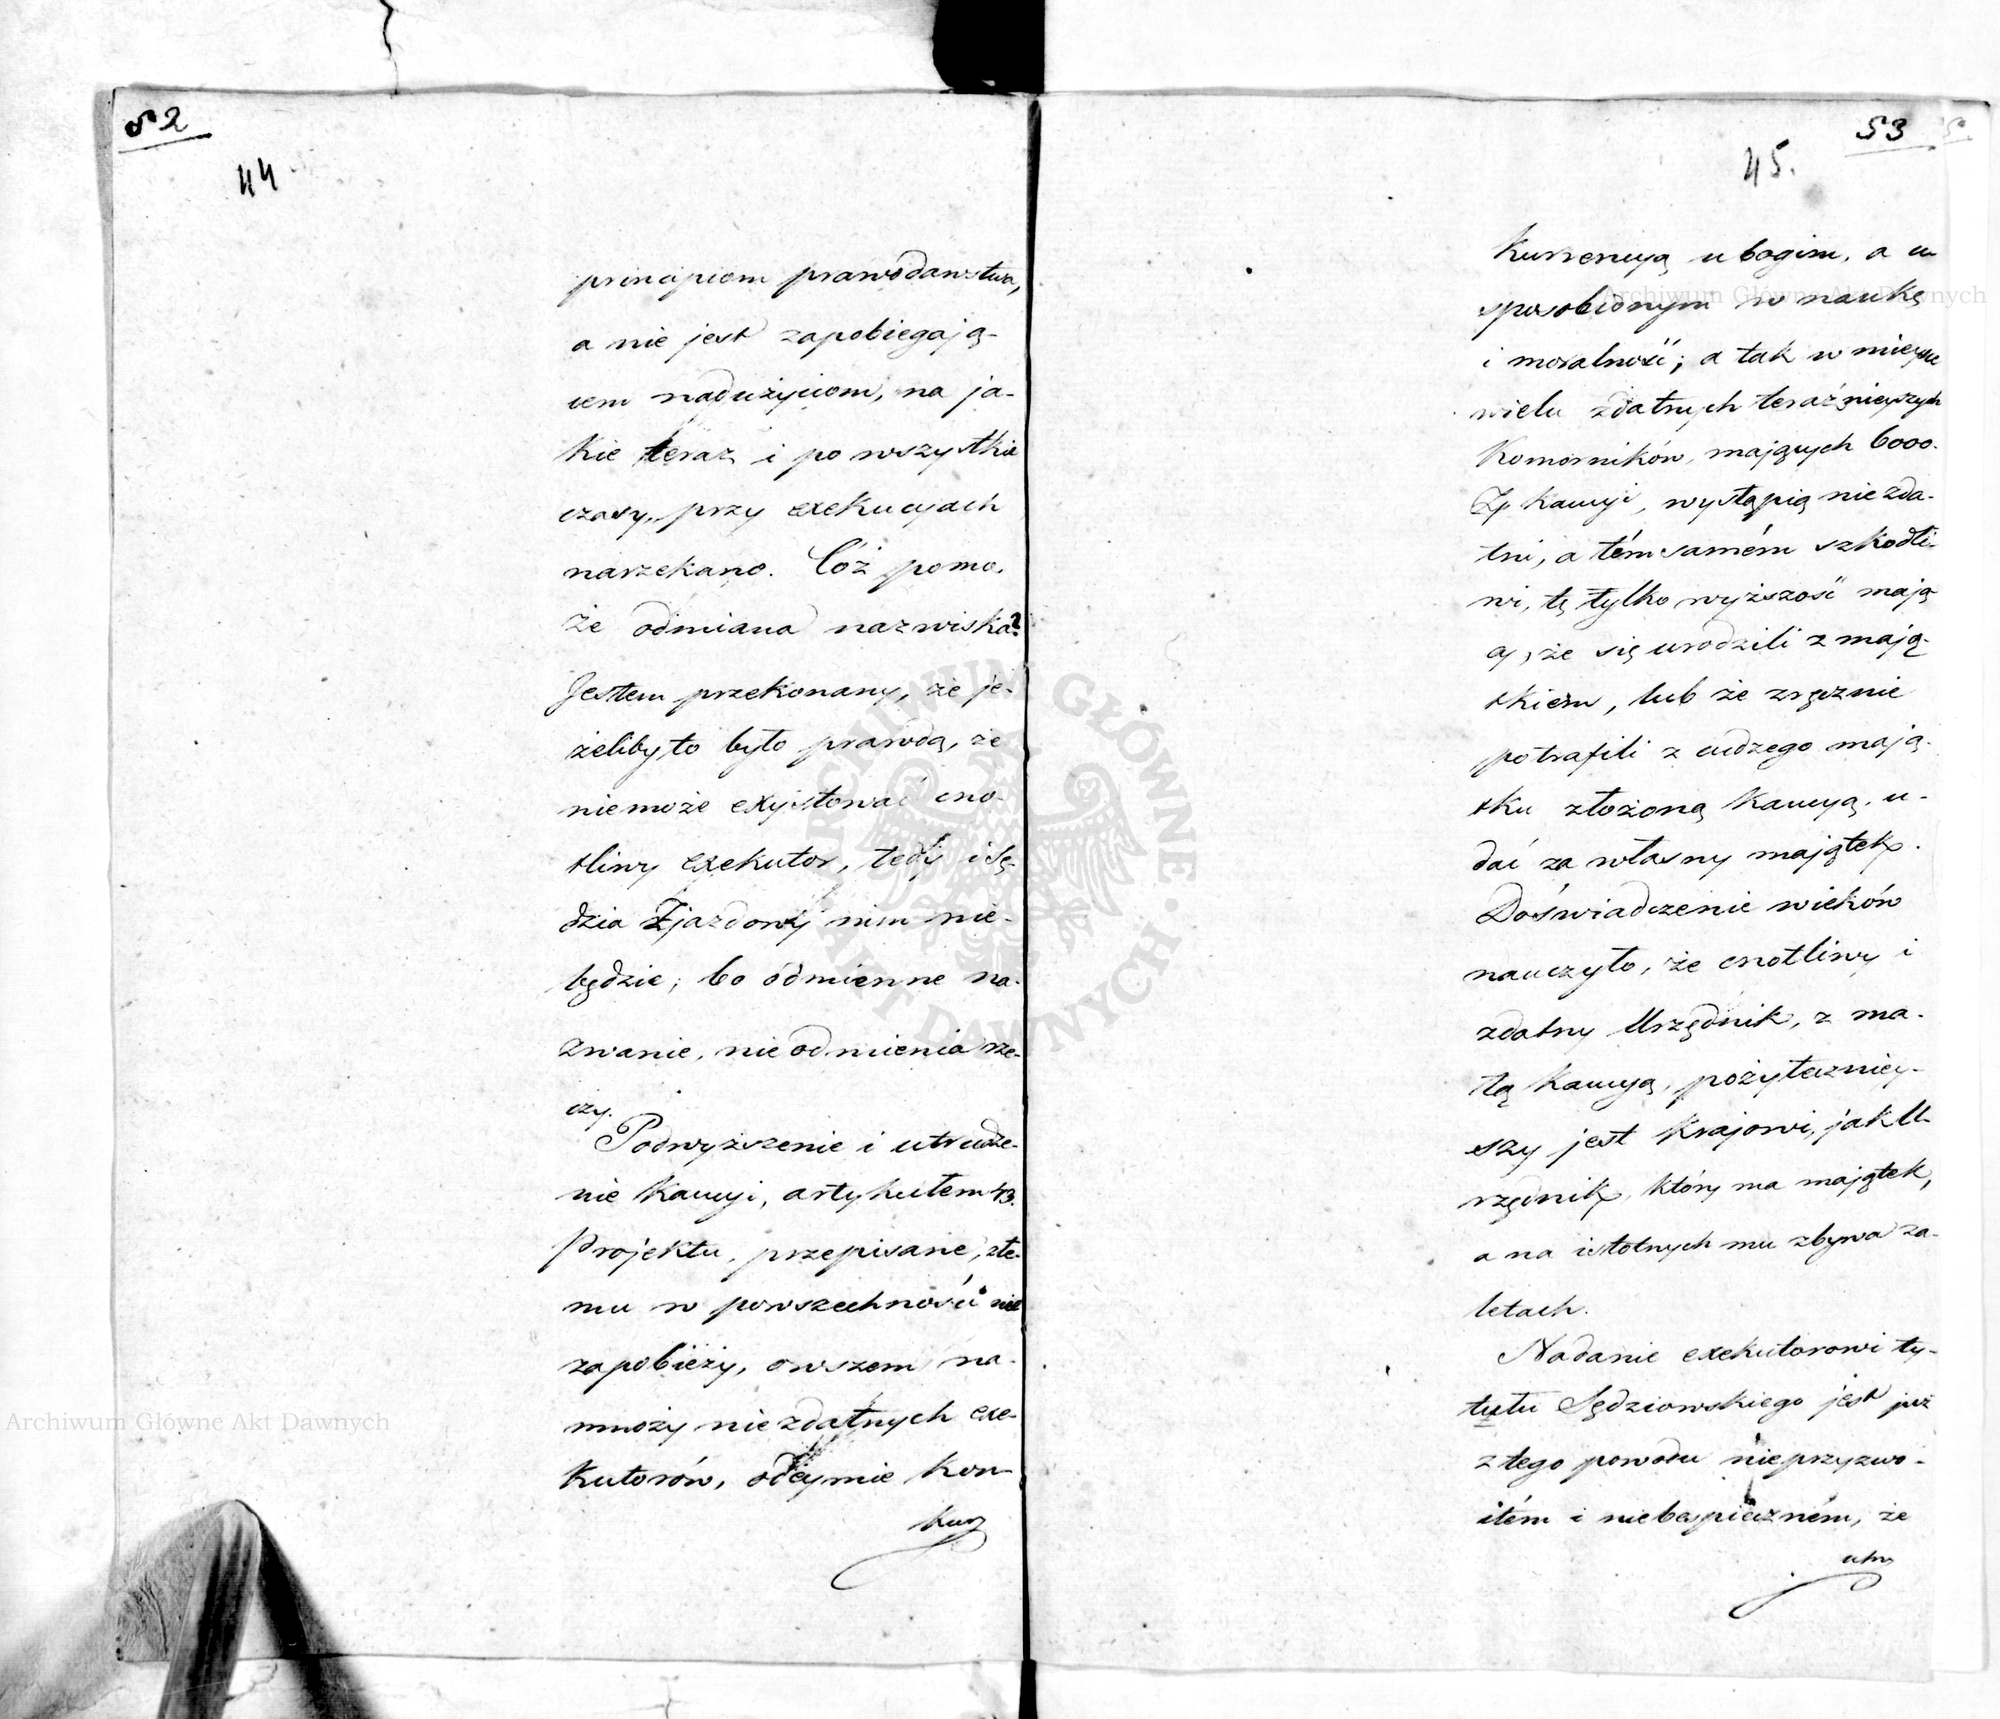 52
44
principiom prawodawstwa,
a nie jest zapobiegają-
cem nadużyciom, na ja-
kie teraz i po wszystkie
czasy, przy exekucyach
narzekano. Cóż pomo-
że odmiana nazwiska?
Jestem przekonany, że je-
żeliby to było prawdą, że
niemoże exystować cno-
tliwy exekutor, tedy i Sę-
dzia Zjazdowy nim nie-
będzie; bo odmienne na-
zwanie, nieodmienia rze-
czy.
Podwyższenie i utrudze-
nie Kaucyi, artykułem 43.
Projektu, przepisane, złe-
mu w powszechności nie
zapobieży, owszem na-
mnoży niezdatnych exe-
kutorów, odeymie kon-
kur
53
45.
kurrencyą ubogim, a u
sposobionym w naukę
i moralność; a tak w mieysce
wielu zdatnych teraźnieyszych
Komorników, mających 6000.
Zł. kaucyi, wystąpią niezda-
tni, a tém samém szkodli-
wi, tę tylko wyższość mają
cy, że się urodzili z mają-
tkiem, lub że zręcznie
potrafili z cudzego mają-
tku złożoną kaucyą, u-
dać za własny majątek.
Doświadczenie wieków
nauczyło, że cnotliwy i
zdatny Urzędnik, z ma-
łą kaucyą, pożyteczniey-
szy jest krajowi, jak U-
rzędnik, który ma majątek,
a na istotnych mu zbywa za-
letach.
Nadanie exekutorowi ty-
tułu Sędziowskiego jest już
z tego powodu nieprzyzwo-
itém i niebespieczném, że
Archiwum Główne Akt Dawnych
Archiwum Główne Akt Dawnych
ARCHIWUM GŁÓWNE AKT DAWNYCH